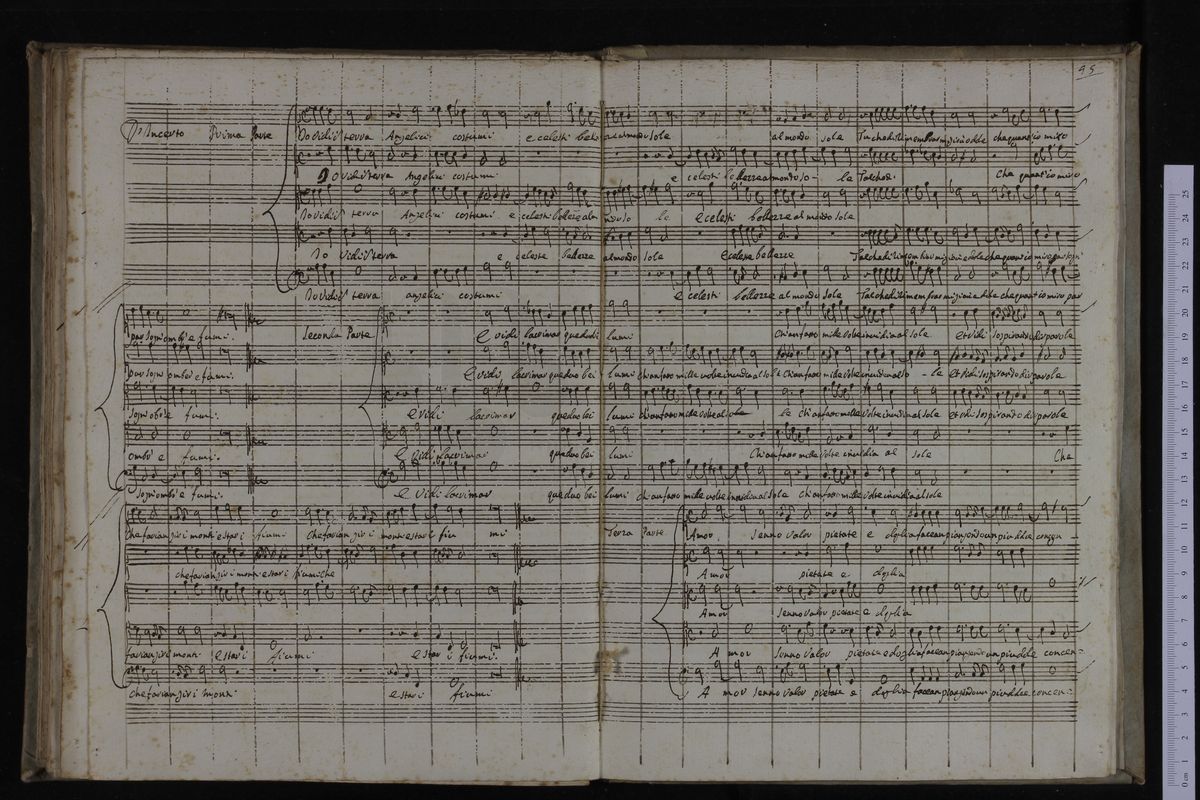 95
D'Incerto Prima Parte Io Vidi'n terra Angelici costumi e celesti bel al mondo sole al mondo sole che quant'io miro
Io Vidi'n terra Angelici costumi e celesti bellezze al mondo so - le Talche di che quant'io miro
Io Vidi'n terra Angelici costumi e celesti bellezze al mondo so le e celesti bellezze al mondo sole
Io Vidi'n terra e celeste bellezze al mondo sole e celeste bellezze
Io Vidi'n terra angelici costumi e celesti bellezze al mondo sole che quant'io miro par
par sogni ombr'e fumi. Seconda Parte E vidi lacrimar que duo di lumi Ch'an fatto mille volte invidia al sole et vidi sospirando dir parole
par sogni ombr'e fumi. E vidi lacrimar que duo bei lumi ch'an fatto mille volte invidia al sole Ch'an fatto mille volte invidia al so - le et vidi sospirando dir parole
sogni ombr'e fumi. e vidi lacrimar que duo bei lumi ch'an fatto mille volte le ch'an fatto mille volte invidia al sole et vidi sospirando dir parole
ombr'e fumi. E vidi lacrimar que duo bei lumi Ch'an fatto mille volte invidia al sole Che
sogni ombr'e fumi. e vidi lacrimar que duo bei lumi ch'an fatto mille volte invidia al sole ch'an fatto mille volte invidia al sole
che farian gir i monti e star i fiumi che farian gir i monti e star i fiu mi Terza Parte Amor senno valor pietate e doglia facean piangendo un piu d'altre concen
che farian gir i monti e star i fiumi che Amor pietate e doglia
Amor senno valor pietate e doglia
farian gir i monti e star i fiumi e star i fiumi. Amor senno valor pietate e doglia facean piangendo un piu d'altre concen-
che farian gir i monti e star i fiumi Amor senno valor pietate e doglia facean piangendo un piu d'altre concen-
0 cm 1 2 3 4 5 6 7 8 9 10 11 12 13 14 15 16 17 18 19 20 21 22 23 24 25